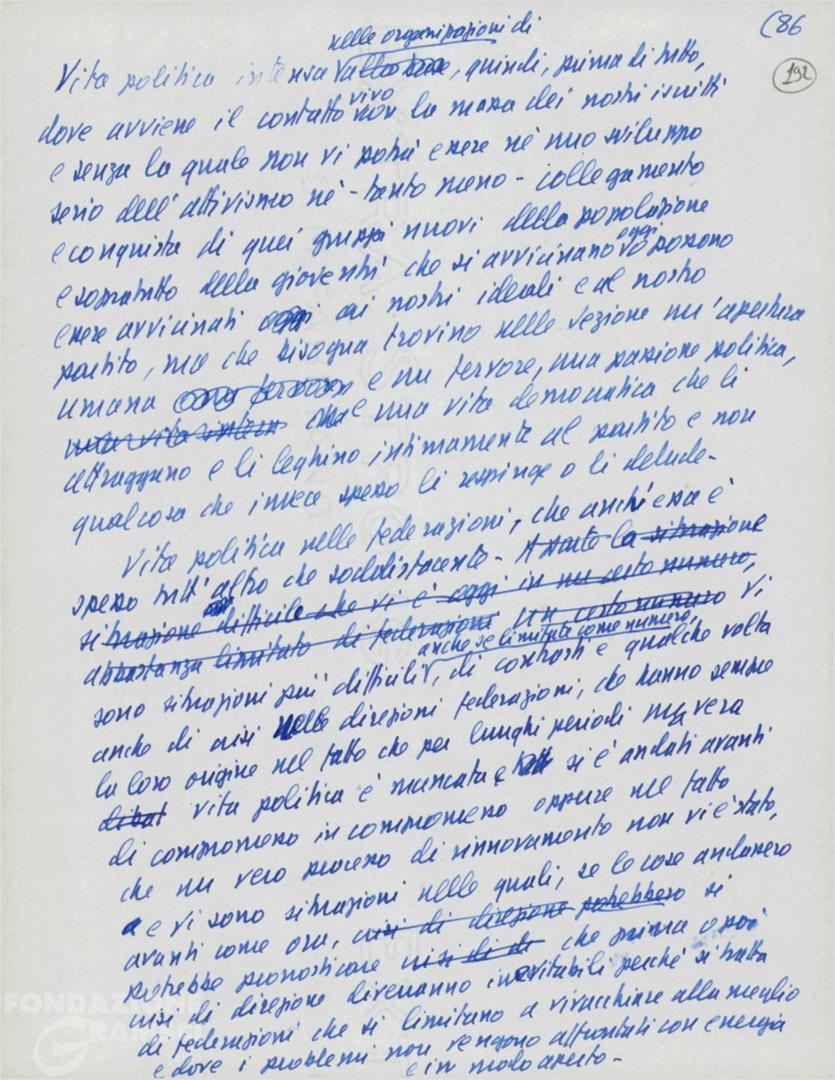 (86
192
nelle organizzazioni di
Vita politica intensa alla base, quindi, prima di tutto,
vivo
dove avviene il contatto con la massa dei nostri iscritti
e senza la quale non vi potrà essere né uno sviluppo
serio dell'attivismo né - tanto meno - collegamento
e conquista di quei gruppi nuovi della popolazione
oggi
e sopratutto della gioventù che si avvicinano o possono
essere avvicinati oggi ai nostri ideali e al nostro
partito, ma che bisogna trovino nelle sezione un'apertura
umana e un fervore, una passione politica,
una vita intensa e una vita democratica che li
attraggano e li leghino intimamente al partito e non
qualcosa che invece spesso li respinge o li delude-
Vita politica nelle federazioni, che anch'essa è
spesso tutt'altro che soddisfacente - A parte la situazione
situazione difficile che vi è oggi in un certo numero,
abbastanza limitato di federazioni un certo numero vi
anche se limitate come numero,
sono situazioni più difficili, di contrasti e qualche volta
anche di crisi nelle direzioni federazioni, che hanno sempre
la loro origine nel fatto che per lunghi periodi una vera
dibat vita politica è mancata e si è andati avanti
di compromesso in compromesso oppure nel fatto
che un vero processo di rinnovamento non vi è stato,
e vi sono situazioni nelle quali, se le cose andassero
avanti come ora, crisi di direzione potrebbero si
potrebbe pronosticare crisi di di che prima o poi
crisi di direzione diverranno inevitabili perché si tratta
di federazioni che si limitano a vivacchiare alla meglio
e dove i problemi non vengono affrontati con energia
e in modo aperto -
FONDAZIONE
GRAMSCI